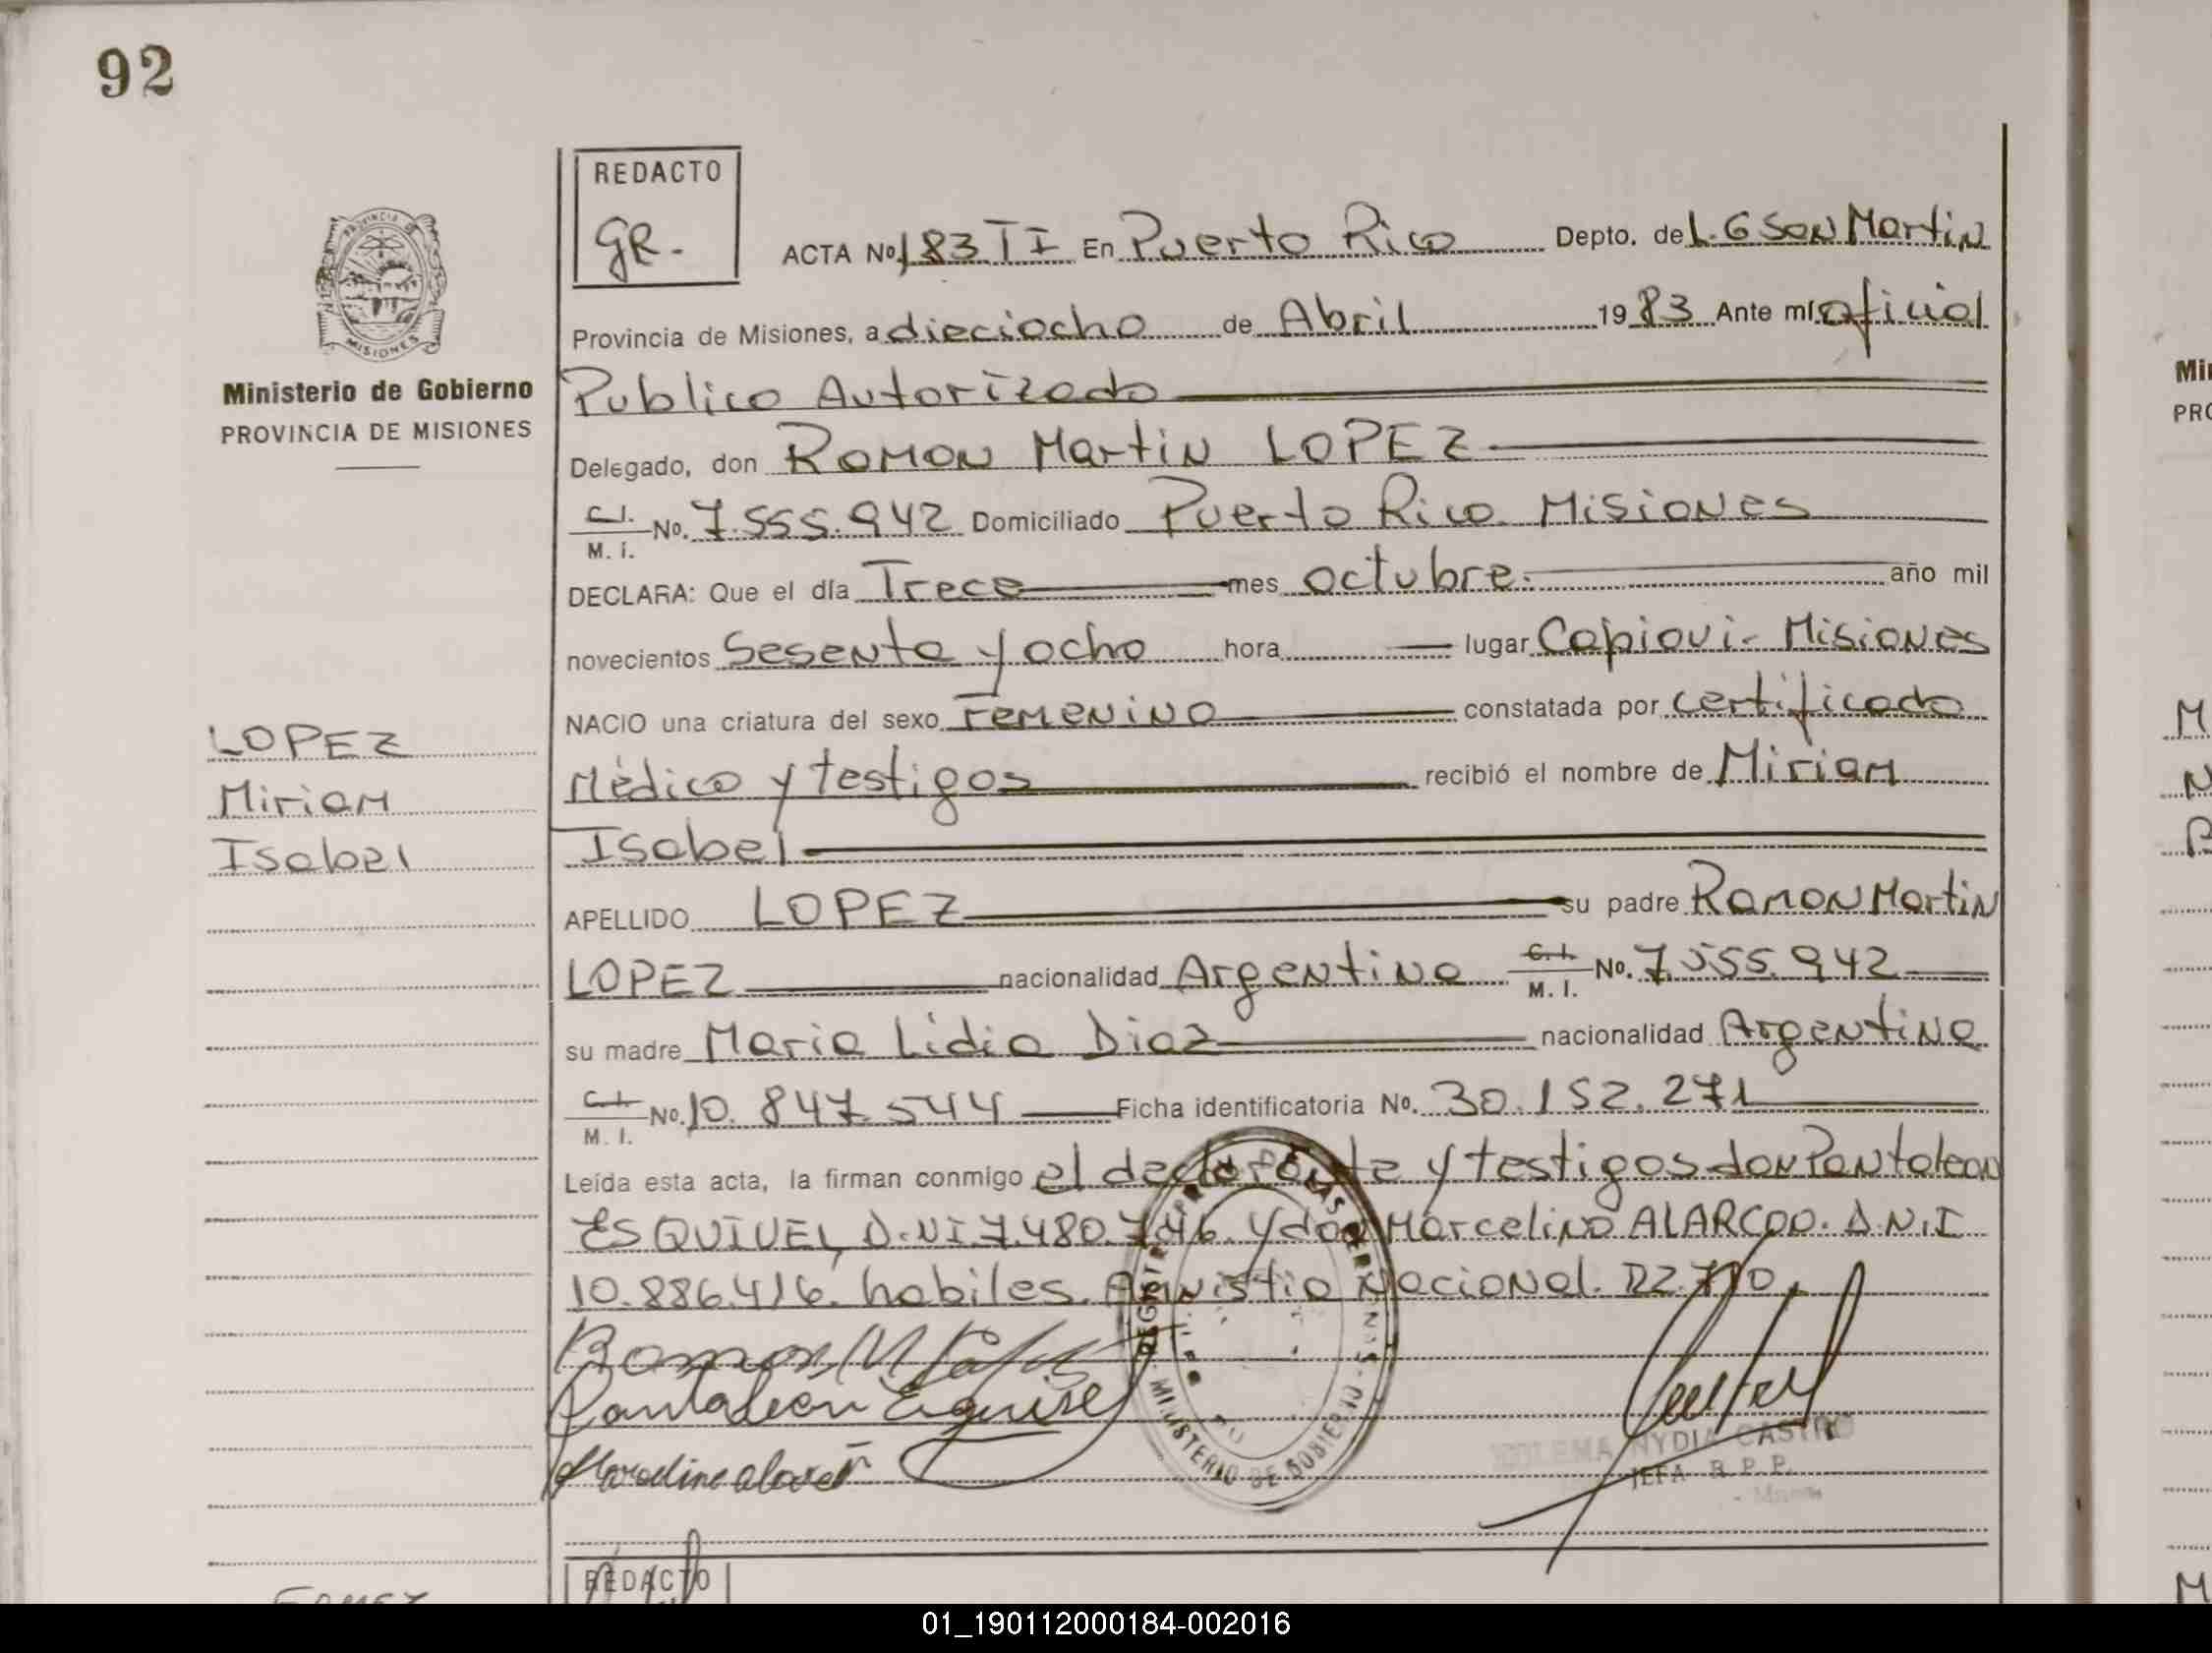 92
REDACTO
GR.
ACTA No. 183 TI En Puerto Rico Depto. de L. G San Martin
Provincia de Misiones, a dieciocho de Abril 1983 Ante mí oficial
Publico Autorizado
Delegado, don Ramon Martin LOPEZ
C.I. M. I. No. 7.555.942 Domiciliado Puerto Rico Misiones
DECLARA: Que el día Trece mes octubre. año mil
novecientos Sesenta y ocho hora lugar Capiovi- Misiones
NACIO una criatura del sexo Femenino constatada por certificado
Médico y testigos recibió el nombre de Miriam
Isabel
APELLIDO LOPEZ su padre Ramon Martin
LOPEZ nacionalidad Argentina C.I. M. I. No. 7.555.942
su madre Maria Lidia Diaz nacionalidad Argentina
C.I. M. I. No. 10.847.544 Ficha identificatoria No. 30.152.271
Leída esta acta, la firman conmigo el declarante y testigos don Pantaleon
ESQUIVEL, D.NI.7.480.746. y don Marcelino ALARCON. D.N.I
10.886.416. habiles. Amnistia Nacional.
Ramon M Lopez
Pantaleon Esquivel
Marcelino alarcon
REGISTRO DE LAS PERSONAS
MINISTERIO DE GOBIERNO
NYDIA CASTRO
JEFA R.P.P.
PROVINCIA DE
MISIONES
Ministerio de Gobierno
PROVINCIA DE MISIONES
LOPEZ
Miriam
Isabel
REDACTO
Min
PRO
M
N
B
M
01_190112000184-002016